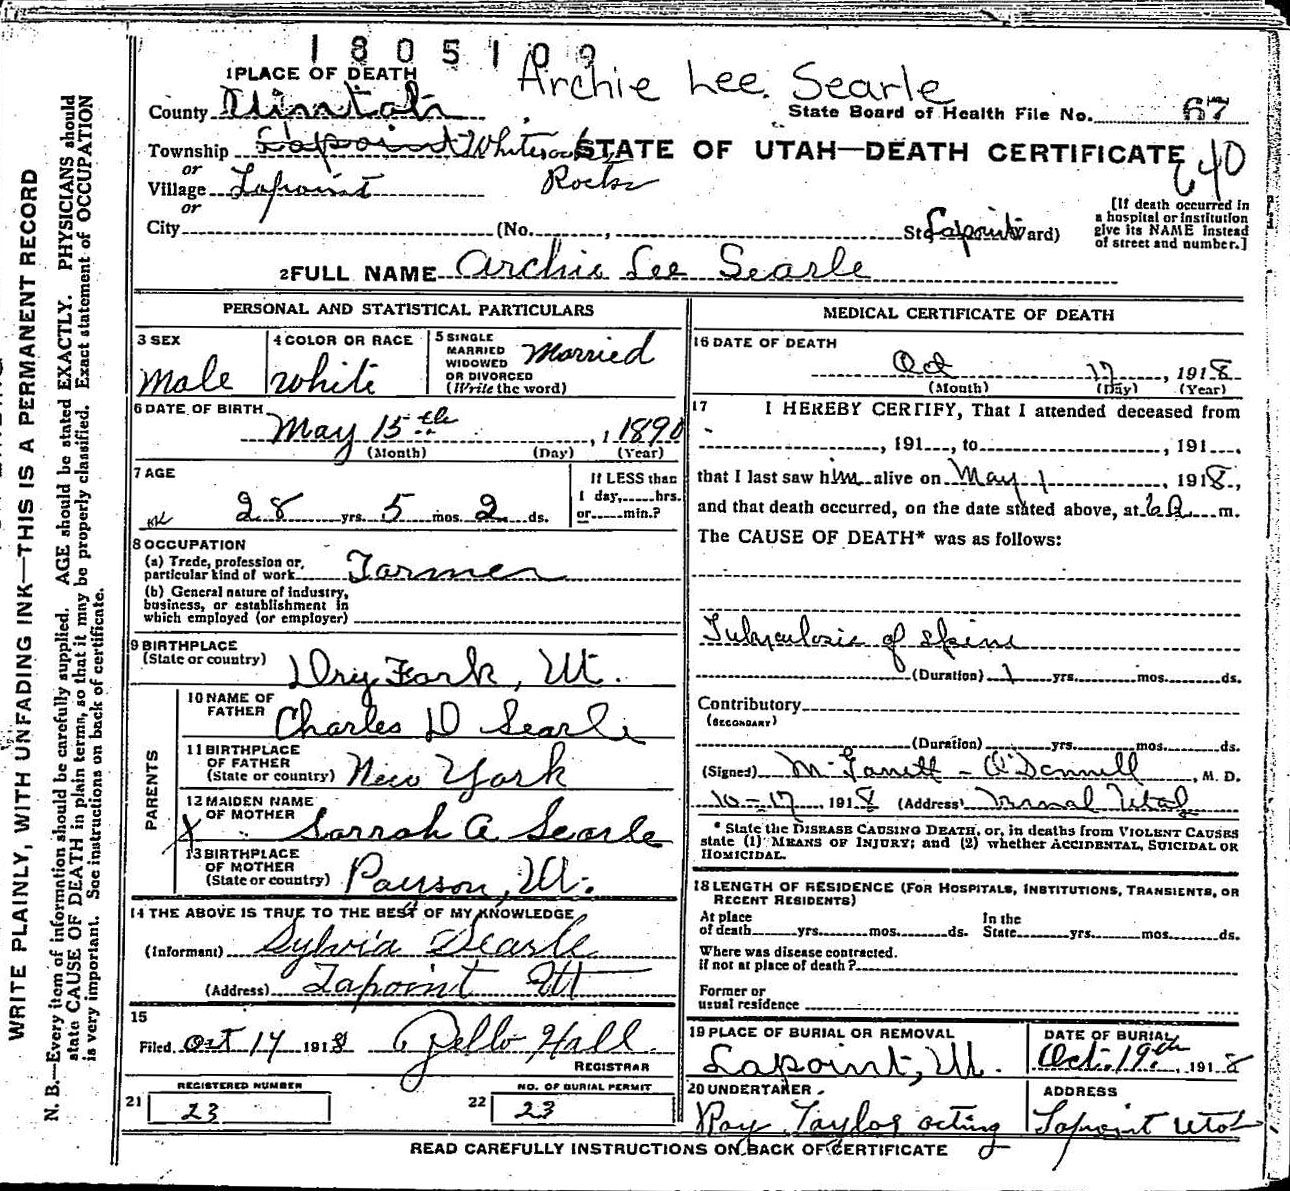 1805109
Archie Lee Searle
1 PLACE OF DEATH
County Uintah
State Board of Health File No. 67
Township Lapoint Whiterocks
STATE OF UTAH—DEATH CERTIFICATE
or
Rocks
640
Village Lapoint
or
City (No. , St. Lapoint Ward)
[If death occurred in
a hospital or institution
give its NAME instead
of street and number.]
2 FULL NAME Archie Lee Searle
PERSONAL AND STATISTICAL PARTICULARS
3 SEX
Male
4 COLOR OR RACE
White
5 SINGLE
MARRIED
WIDOWED
OR DIVORCED
(Write the word)
Married
6 DATE OF BIRTH
May 15th , 1 1890
(Month) (Day) (Year)
7 AGE
28 yrs. 5 mos. 2 ds.
If LESS than
1 day, hrs.
or min.?
8 OCCUPATION
(a) Trede, profession or,
particular kind of work Farmer
(b) General nature of industry,
business, or establishment in
which employed (or employer)
9 BIRTHPLACE
(State or country) Dry Fork, Ut.
PARENTS
10 NAME OF
FATHER Charles D Searle
11 BIRTHPLACE
OF FATHER
(State or country) New York
12 MAIDEN NAME
OF MOTHER
X Sarrah A Searle
13 BIRTHPLACE
OF MOTHER
(State or country) Payson, Ut.
14 THE ABOVE IS TRUE TO THE BEST OF MY KNOWLEDGE
(Informant) Sylvia Searle
(Address) Lapoint Ut
15
Filed Oct 17 1918 Hall
REGISTRAR
REGISTERED NUMBER
21 23
NO. OF BURIAL PERMIT
22 23
MEDICAL CERTIFICATE OF DEATH
16 DATE OF DEATH
Oct 17 , 1918
(Month) (Day) (Year)
17 I HEREBY CERTIFY, That I attended deceased from
, 191 , to , 191 .
that I last saw him alive on May 1 , 1918,
and that death occurred, on the date stated above, at 6 a m.
The CAUSE OF DEATH* was as follows:
Tuberculosis of spine
(Duration) 1 yrs. mos. ds.
Contributory
(SECONDARY)
(Duration) yrs. mos. ds.
(Signed) O'Donnell , M. D.
10-17 , 1918 (Address) Vernal Utah
* State the DISEASE CAUSING DEATH, or, in deaths from VIOLENT CAUSES
state (1) MEANS OF INJURY; and (2) whether ACCIDENTAL, SUICIDAL OR
HOMICIDAL.
18 LENGTH OF RESIDENCE (FOR HOSPITALS, INSTITUTIONS, TRANSIENTS, OR
RECENT RESIDENTS)
At place
of death yrs. mos. ds.
In the
State yrs. mos. ds.
Where was disease contracted.
if not at place of death?
Former or
usual residence
19 PLACE OF BURIAL OR REMOVAL
Lapoint, Ut.
DATE OF BURIAL
Oct. 19th , 1918
20 UNDERTAKER
Ray Taylor acting
ADDRESS
Lapoint Utah
READ CAREFULLY INSTRUCTIONS ON BACK OF CERTIFICATE
WRITE PLAINLY, WITH UNFADING INK—THIS IS A PERMANENT RECORD
N. B.—Every item of information should be carefully supplied. AGE should be stated EXACTLY. PHYSICIANS should
state CAUSE OF DEATH in plain terms, so that it may be properly classified. Exact statement of OCCUPATION
is very important. See instructions on back of certificate.